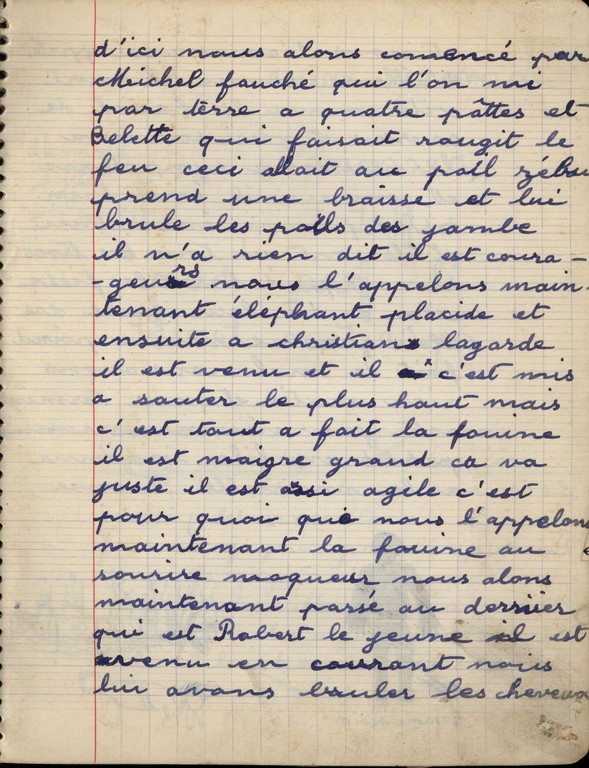 d'ici nous alons comencé par
Meichel fauché qui l'on mi
par terre a quatre pâttes et
Belette qui faisait rougit le
feu ceci allait au poil zébu
prend une braisse et lui
brule les poils des jambe
il n'a rien dit il est coura-
-geurs nous l'appelons main-
tenant éléphant placide et
ensuite a christian lagarde
il est venu et il c'est mis
a sauter le plus haut mais
c'est tout a fait la fouine
il est maigre grand ca va
juste il est assi agile c'est
pour quoi que nous l'appelons
maintenant la fouine au
sourire moqueur nous alons
maintenant passé au dernier
qui est Robert le jeune il est
venu en courant nous
lui avons bruler les cheveux